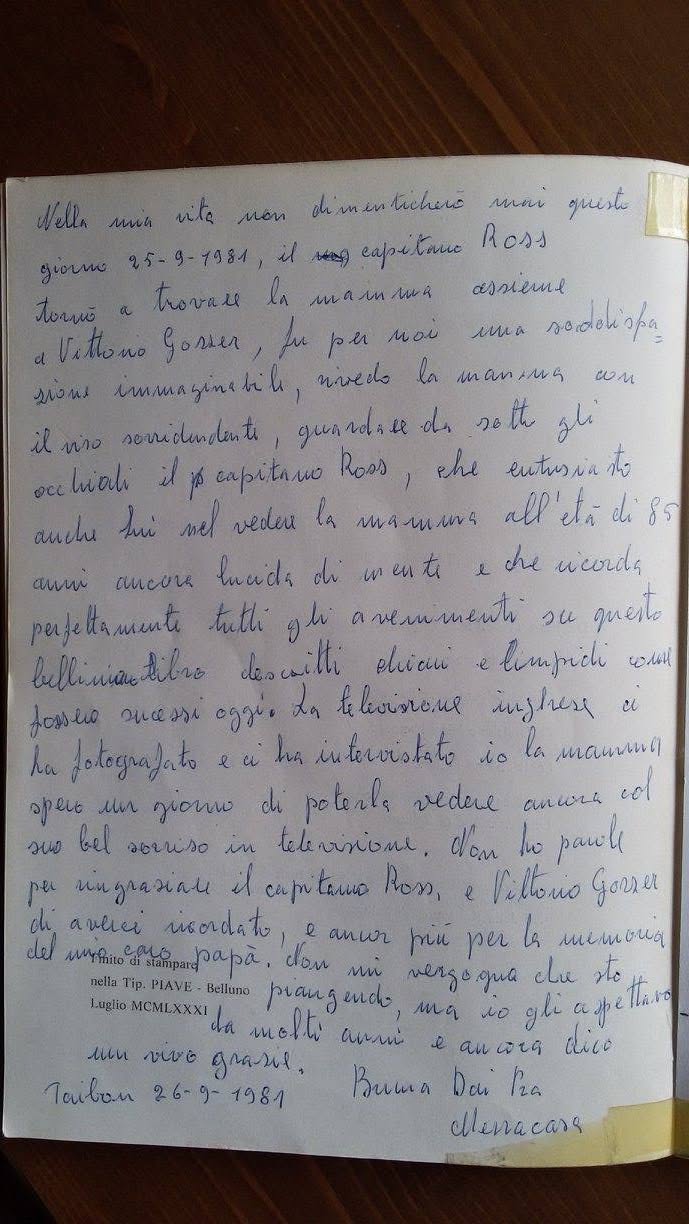 Nella mia vita non dimenticherò mai questo
giorno 25-9-1981, il capitano Ross
tornò a trovare la mamma assieme
a Vittorio Gozzer, fu per noi una soddisfa=
zione immaginabile, rivedo la mamma con
il viso sorridendente, guardare da sotto gli
occhiali il capitano Ross, che entusiasto
anche lui nel vedere la mamma all'età di 85
anni ancora lucida di mente e che ricorda
perfettamente tutti gli avenimenti su questo
bellissimo libro descritti chiari e limpidi come
fossero sucessi oggi. La televisione inglese ci
ha fotografato e ci ha intervistato io la mamma
spero un giorno di poterla vedere ancora col
suo bel sorriso in televisione. Non ho parole
per ringraziare il capitano Ross, e Vittorio Gozzer
di averci ricordato, e ancor più per la memoria
del mio caro papà. Non mi vergogna che sto
Finito di stampare
nella Tip. PIAVE - Belluno piangendo, ma io gli aspettavo
Luglio MCMLXXXI
da molti anni e ancora dico
un vivo grazie.
Taibon 26-9-1981 Bruna Dai Pra